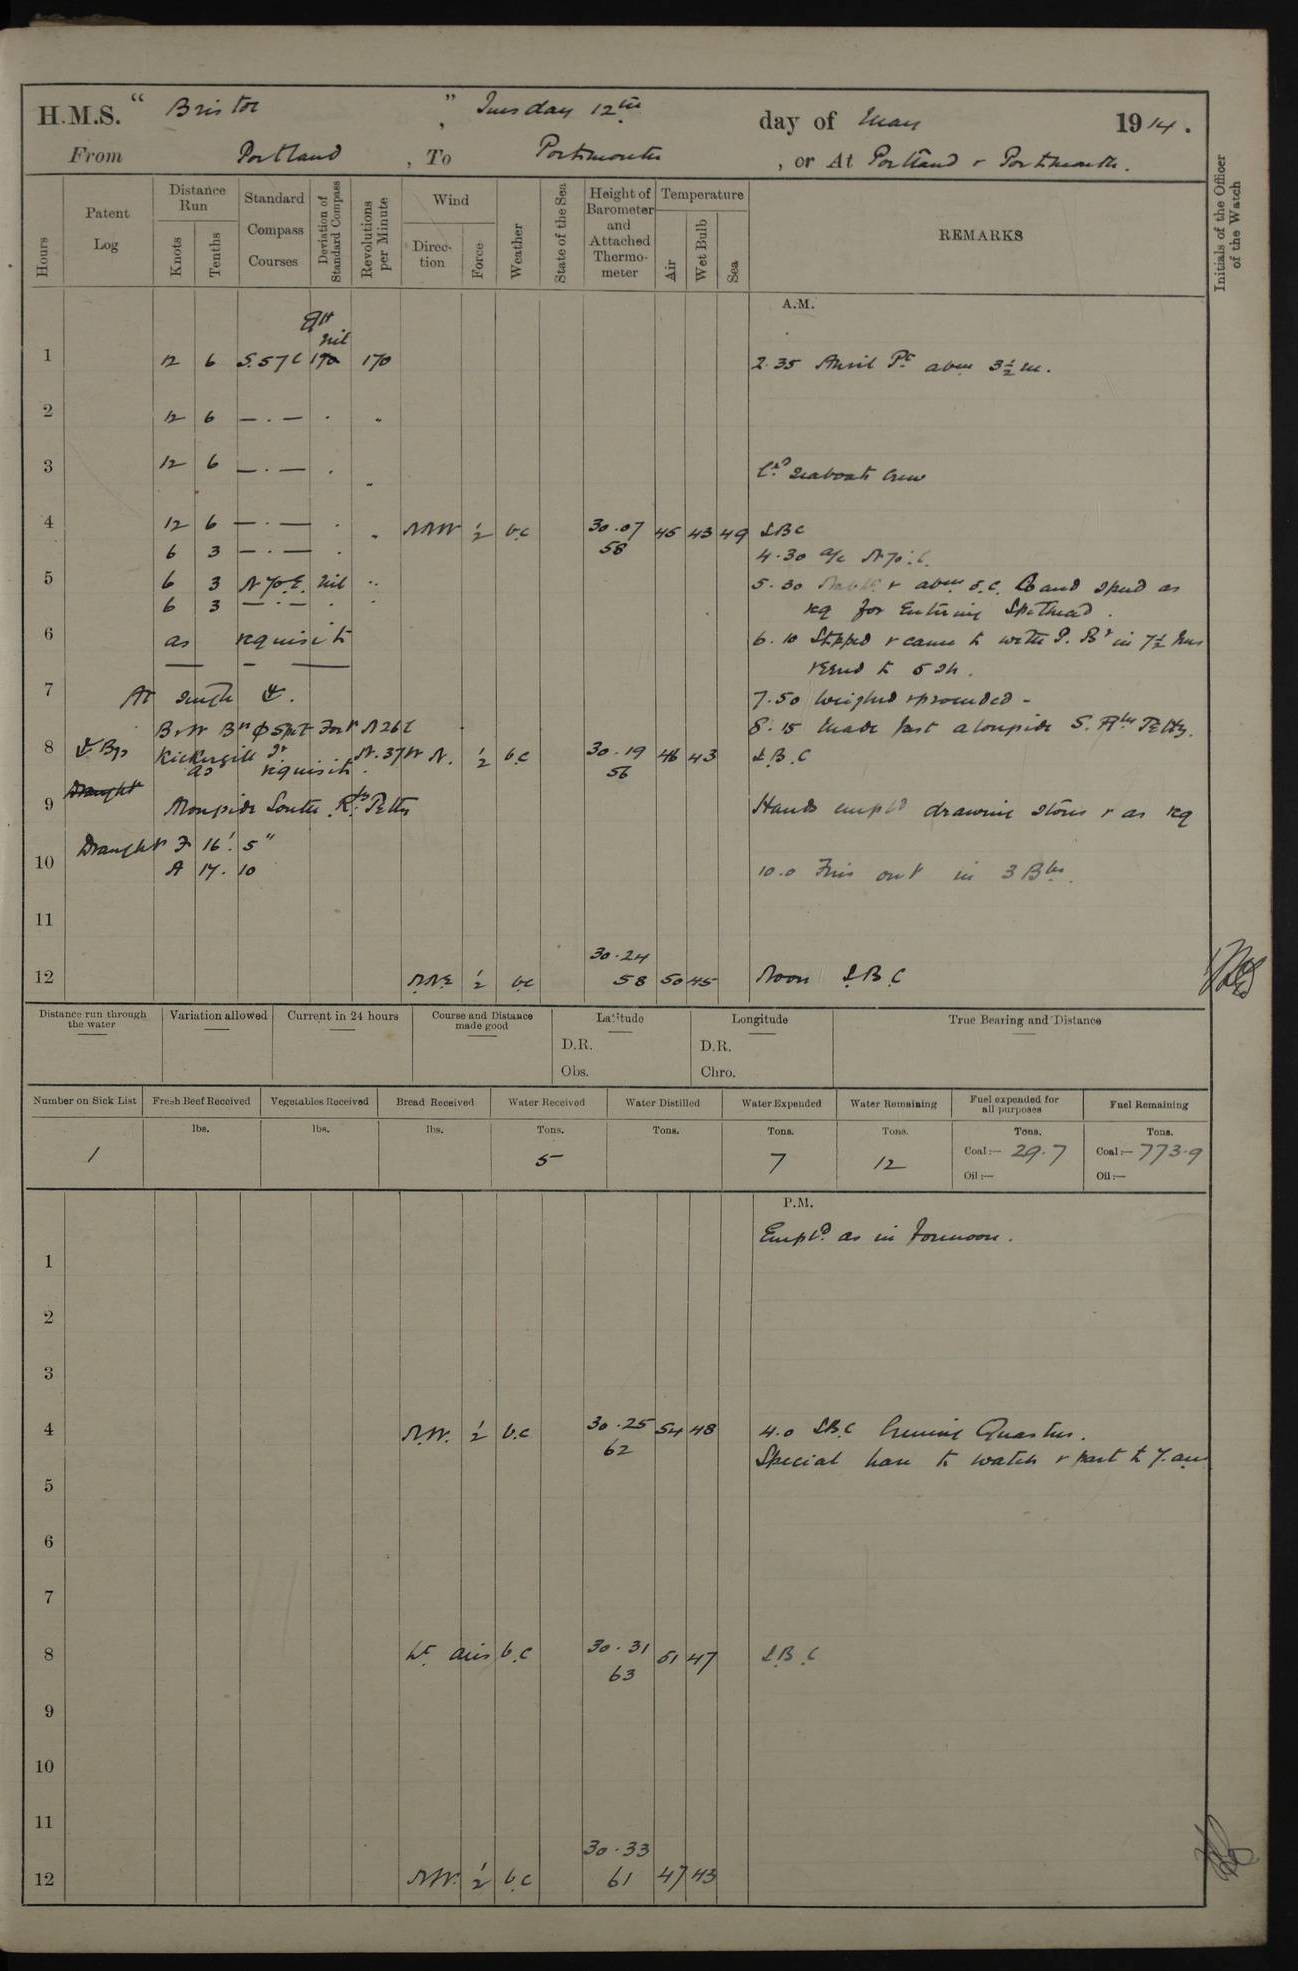 H.M.S. " Bristol ", Tuesday 12th day of May 1914.
From Portland, To Portsmouth, or At Portland & Portsmouth.
Hours
Patent Log
Distance Run
Knots
Tenths
Standard Compass Courses
Deviation of Standard Compass
Revolutions per Minute
Wind
Direction
Force
Weather
State of the Sea
Height of Barometer and Attached Thermometer
Temperature
Air
Wet Bulb
Sea
REMARKS
Initials of the Officer of the Watch
A.M.
nil
1 12 6 S.57E 170 170 2.35 Anvil Pt abm 3½ m.
2 12 6 — . — . "
3 12 6 — . — . " Ex'd Seaboats Crew
4 12 6 — . — . " NNW ½ b.c 30.07 45 43 49 S.B.C
6 3 — . — . 58 4.30 a/c N70E.
5 6 3 N70E. nil " 5.30 abm a.c. Co and speed as
6 3 — . — . " req for Entering Spithead.
6 as requisite 6.10 Stopped & came to with P. Br in 7½ fms
veered to 5 sh.
7 At single ⚓. 7.50 Weighed & proceeded -
B & W Bn ϕ Spit Fort N26E 8.15 Made fast alongside S. Rly Jetty.
8 ⚓ Bgs Kickergill Tr N.37W N. ½ b.c 30.19 46 43 S.B.C
as requisite. 56
Draught
9 Alongside South Rly Jetty Hands empld drawing stores & as req
Draught F 16' . 5"
10 A 17 . 10 10.0 Fires out in 3 Blrs.
11
30.24
12 NNE ½ b.c 58 50 45 Noon S.B.C
Distance run through the water
Variation allowed
Current in 24 hours
Course and Distance made good
Latitude
D.R.
Obs.
Longitude
D.R.
Chro.
True Bearing and Distance
Number on Sick List
Fresh Beef Received
Vegetables Received
Bread Received
Water Received
Water Distilled
Water Expended
Water Remaining
Fuel expended for all purposes
Fuel Remaining
lbs. lbs. lbs. Tons. Tons. Tons. Tons. Tons. Tons.
1 5 7 12 Coal:— 29.7 Coal:— 773.9
Oil:— Oil:—
P.M.
Empld as in forenoon.
1
2
3
4 N.W. ½ b.c 30.25 54 48 4.0 S.B.C Evening Quarters.
62 Special leave to watch & part to 7. am
5
6
7
8 Lt airs b.c 30.31 51 47 S.B.C
63
9
10
11
30.33
12 NW. ½ b.c 61 47 43